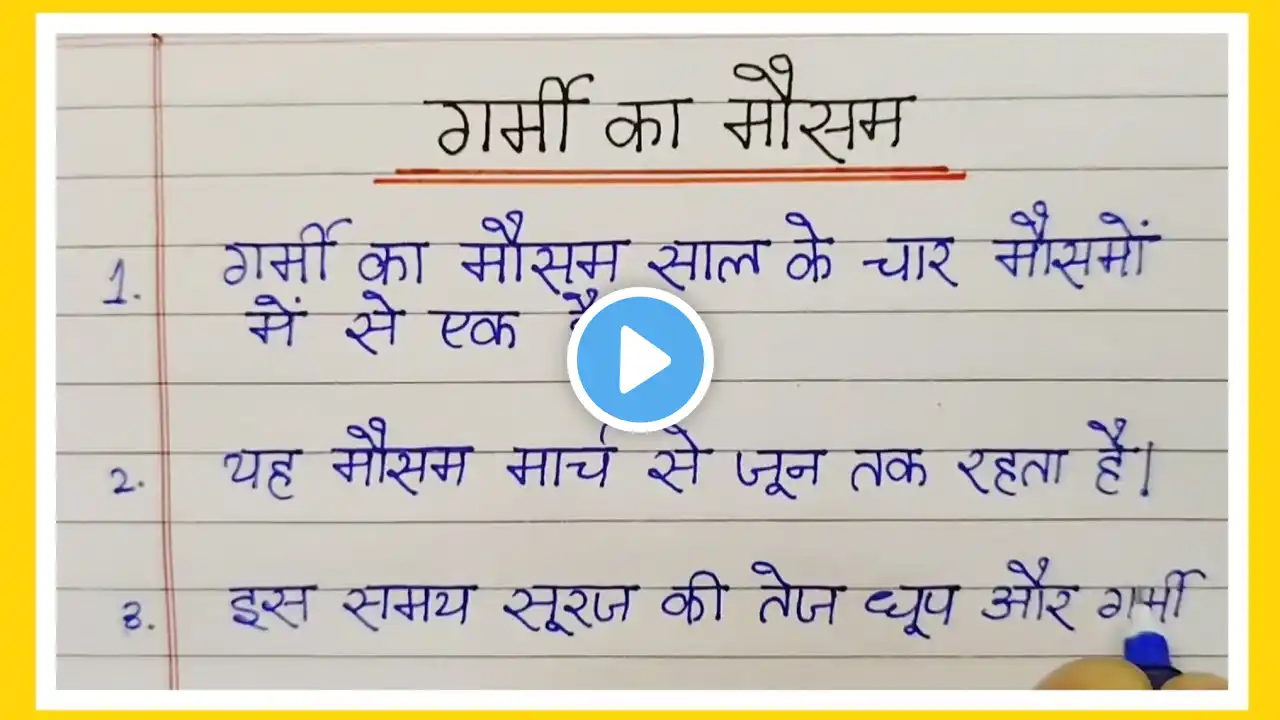 गर्मी का मौसम
1. गर्मी का मौसम साल के चार मौसमों
में से एक
2. यह मौसम मार्च से जून तक रहता है।
3. इस समय सूरज की तेज धूप और गर्मी